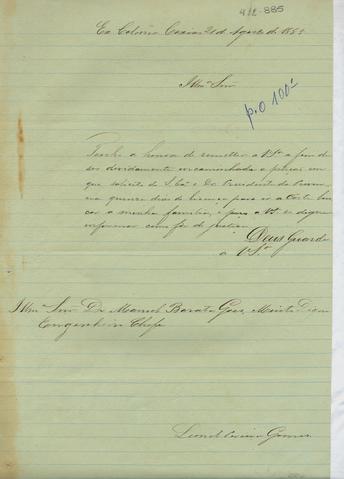 412-885
Ex Colonia Caxias 21 de Agosto de 188
Illmo Snr
p.o 100
Tenho a honra de remetter a V.Sª a fim de
ser devidamente encaminhada a petição em
que solicito de S. Exª o Dr Presidente da Provin
cia quinze dias de licença para ir a Corte bus
car a minha familia, e para a V.S. se digne
informar como for de justiça.
Deus Guarde
a V.Sª
Illmo Snr Dr Manoel Barata Goes, Muito Digno
Engenheiro Chefe
Leonel Gomes